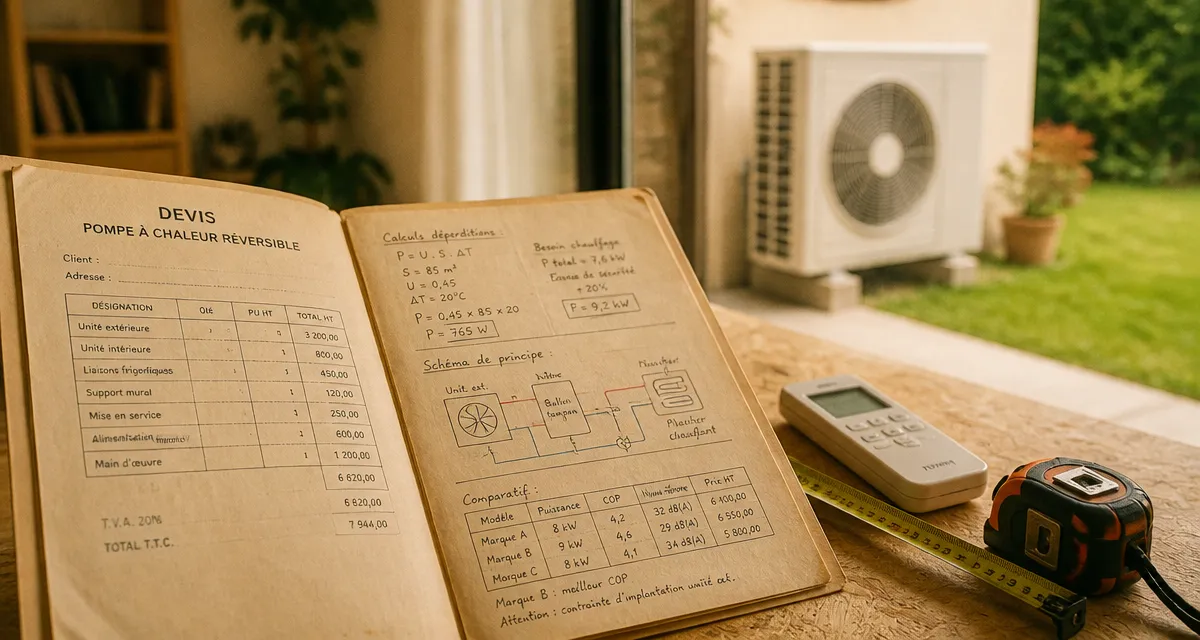 DEVIS
POMPE À CHALEUR RÉVERSIBLE
Client :
Adresse :
DÉSIGNATION Qté PU HT TOTAL HT
Unité extérieure 3 200,00
Unité intérieure 1 800,00
Liaisons frigorifiques 1 450,00
Support mural 1 120,00
Mise en service 1 250,00
Alimentation 1 600,00
Main d'œuvre 1 1 200,00
6 620,00
6 820,00
T.V.A. 20% 7 944,00
TOTAL T.T.C.
Calculs déperditions :
P = U . S . ΔT
S = 85 m²
U = 0,45
ΔT = 20°C
P = 0,45 x 85 x 20
P = 765 W
Besoin chauffage
P total = 7,6 kW
+ 20%
P = 9,2 kW
Schéma de principe :
Unit est.
Ballon
tampon
Plancher
chauffant
Comparatif :
Modèle Puissance COP Prix HT
Marque A 8 kW 4,2 32 dB(A) 6 100,00
Marque B 9 kW 4,6 29 dB(A) 6 550,00
Marque C 8 kW 4,1 34 dB(A) 5 800,00
Marque B : meilleur COP
Attention : contrainte d'implantation unité ext.